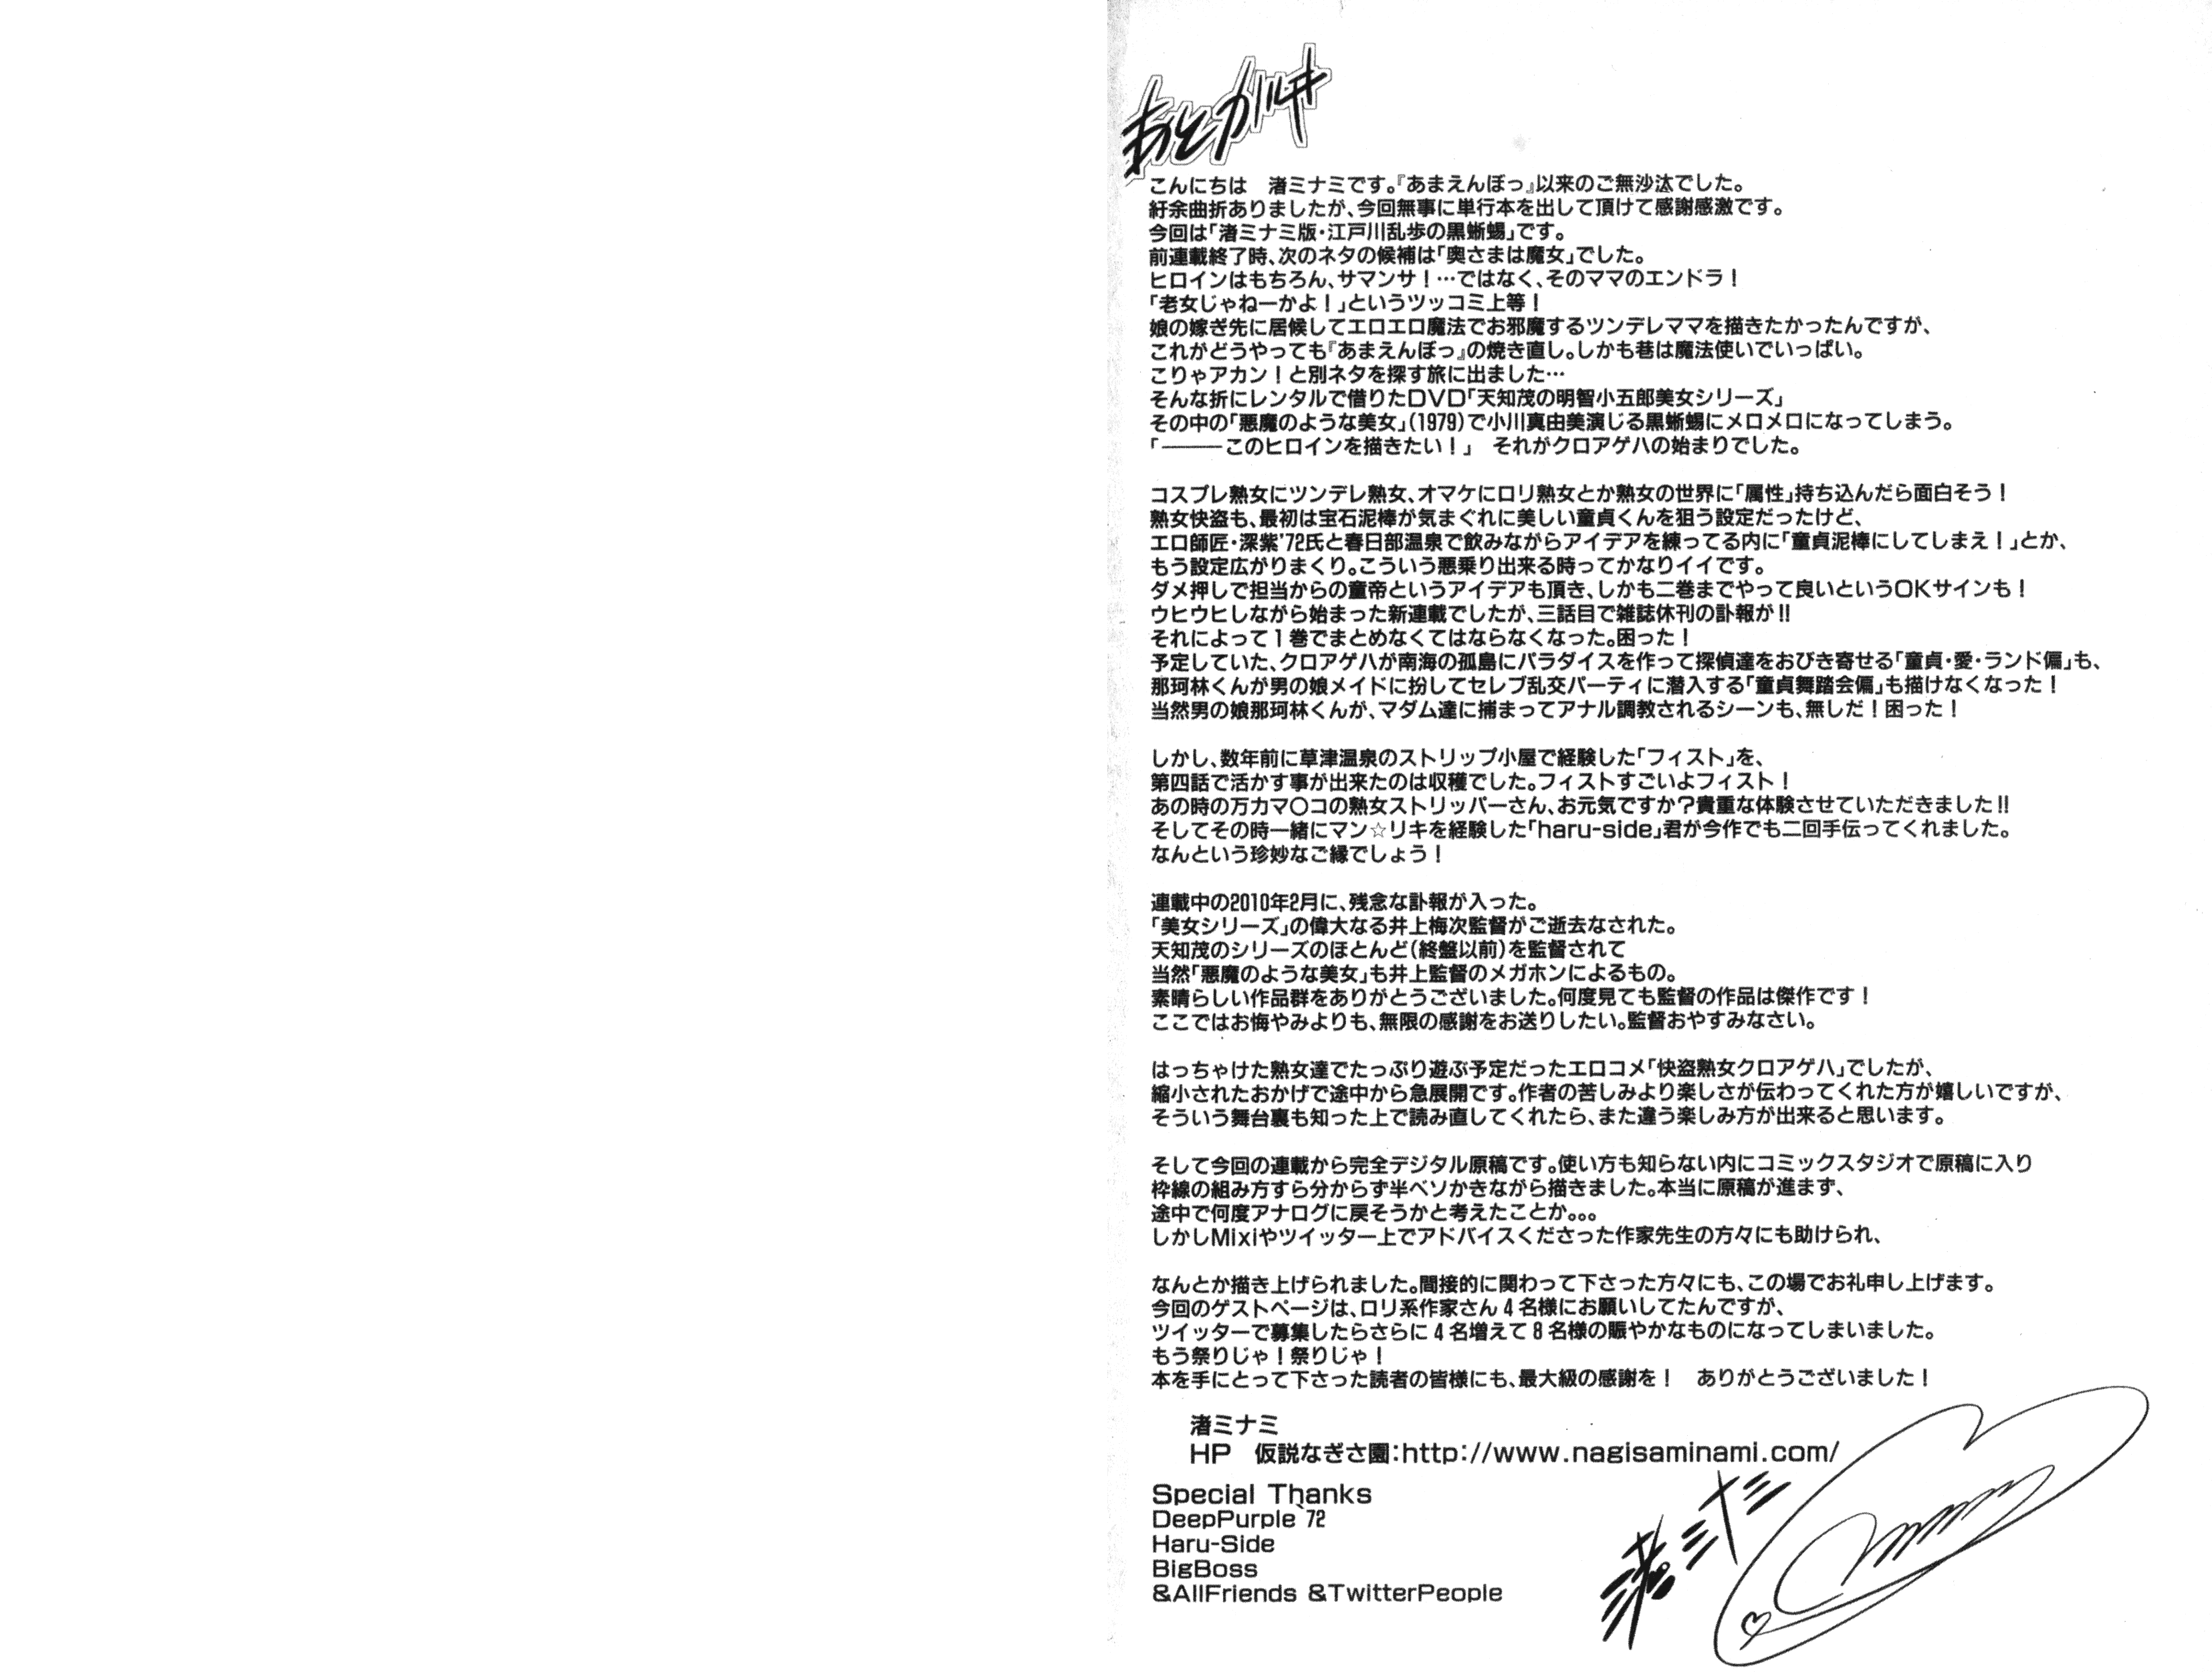 あとがき
こんにちは　渚ミナミです。『あまえんぼっ』以来のご無沙汰でした。
紆余曲折ありましたが、今回無事に単行本を出して頂けて感謝感激です。
今回は「渚ミナミ版・江戸川乱歩の黒蜥蜴」です。
前連載終了時、次のネタの候補は「奥さまは魔女」でした。
ヒロインはもちろん、サマンサ！…ではなく、そのママのエンドラ！
「老女じゃねーかよ！」というツッコミ上等！
娘の嫁ぎ先に居候してエロエロ魔法でお邪魔するツンデレママを描きたかったんですが、
これがどうやっても『あまえんぼっ』の焼き直し。しかも巷は魔法使いでいっぱい。
こりゃアカン！と別ネタを探す旅に出ました…
そんな折にレンタルで借りたDVD「天知茂の明智小五郎美女シリーズ」
その中の「悪魔のような美女」（1979）で小川真由美演じる黒蜥蜴にメロメロになってしまう。
「―――このヒロインを描きたい！」　それがクロアゲハの始まりでした。
コスプレ熟女にツンデレ熟女、オマケにロリ熟女とか熟女の世界に「属性」持ち込んだら面白そう！
熟女快盗も、最初は宝石泥棒が気まぐれに美しい童貞くんを狙う設定だったけど、
エロ師匠・深紫'72氏と春日部温泉で飲みながらアイデアを練ってる内に「童貞泥棒にしてしまえ！」とか、
もう設定広がりまくり。こういう悪乗り出来る時ってかなりイイです。
ダメ押しで担当からの童帝というアイデアも頂き、しかも二巻までやって良いというOKサインも！
ウヒウヒしながら始まった新連載でしたが、三話目で雑誌休刊の訃報が!!
それによって１巻でまとめなくてはならなくなった。困った！
予定していた、クロアゲハが南海の孤島にパラダイスを作って探偵達をおびき寄せる「童貞・愛・ランド偏」も、
那珂林くんが男の娘メイドに扮してセレブ乱交パーティに潜入する「童貞舞踏会偏」も描けなくなった！
当然男の娘那珂林くんが、マダム達に捕まってアナル調教されるシーンも、無しだ！困った！
しかし、数年前に草津温泉のストリップ小屋で経験した「フィスト」を、
第四話で活かす事が出来たのは収穫でした。フィストすごいよフィスト！
あの時の万力マ〇コの熟女ストリッパーさん、お元気ですか？貴重な体験させていただきました!!
そしてその時一緒にマン☆リキを経験した「haru-side」君が今作でも二回手伝ってくれました。
なんという珍妙なご縁でしょう！
連載中の2010年2月に、残念な訃報が入った。
「美女シリーズ」の偉大なる井上梅次監督がご逝去なされた。
天知茂のシリーズのほとんど（終盤以前）を監督されて
当然「悪魔のような美女」も井上監督のメガホンによるもの。
素晴らしい作品群をありがとうございました。何度見ても監督の作品は傑作です！
ここではお悔やみよりも、無限の感謝をお送りしたい。監督おやすみなさい。
はっちゃけた熟女達でたっぷり遊ぶ予定だったエロコメ「快盗熟女クロアゲハ」でしたが、
縮小されたおかげで途中から急展開です。作者の苦しみより楽しさが伝わってくれた方が嬉しいですが、
そういう舞台裏も知った上で読み直してくれたら、また違う楽しみ方が出来ると思います。
そして今回の連載から完全デジタル原稿です。使い方も知らない内にコミックスタジオで原稿に入り
枠線の組み方すら分からず半ベソかきながら描きました。本当に原稿が進まず、
途中で何度アナログに戻そうかと考えたことか。。。
しかしMixiやツイッター上でアドバイスくださった作家先生の方々にも助けられ、
なんとか描き上げられました。間接的に関わって下さった方々にも、この場でお礼申し上げます。
今回のゲストページは、ロリ系作家さん４名様にお願いしてたんですが、
ツイッターで募集したらさらに４名増えて８名様の賑やかなものになってしまいました。
もう祭りじゃ！祭りじゃ！
本を手にとって下さった読者の皆様にも、最大級の感謝を！　ありがとうございました！
渚ミナミ
HP　仮説なぎさ園：http://www.nagisaminami.com/
Special Thanks
DeepPurple`72
Haru-Side
BigBoss
&AllFriends &TwitterPeople
渚ミナミ